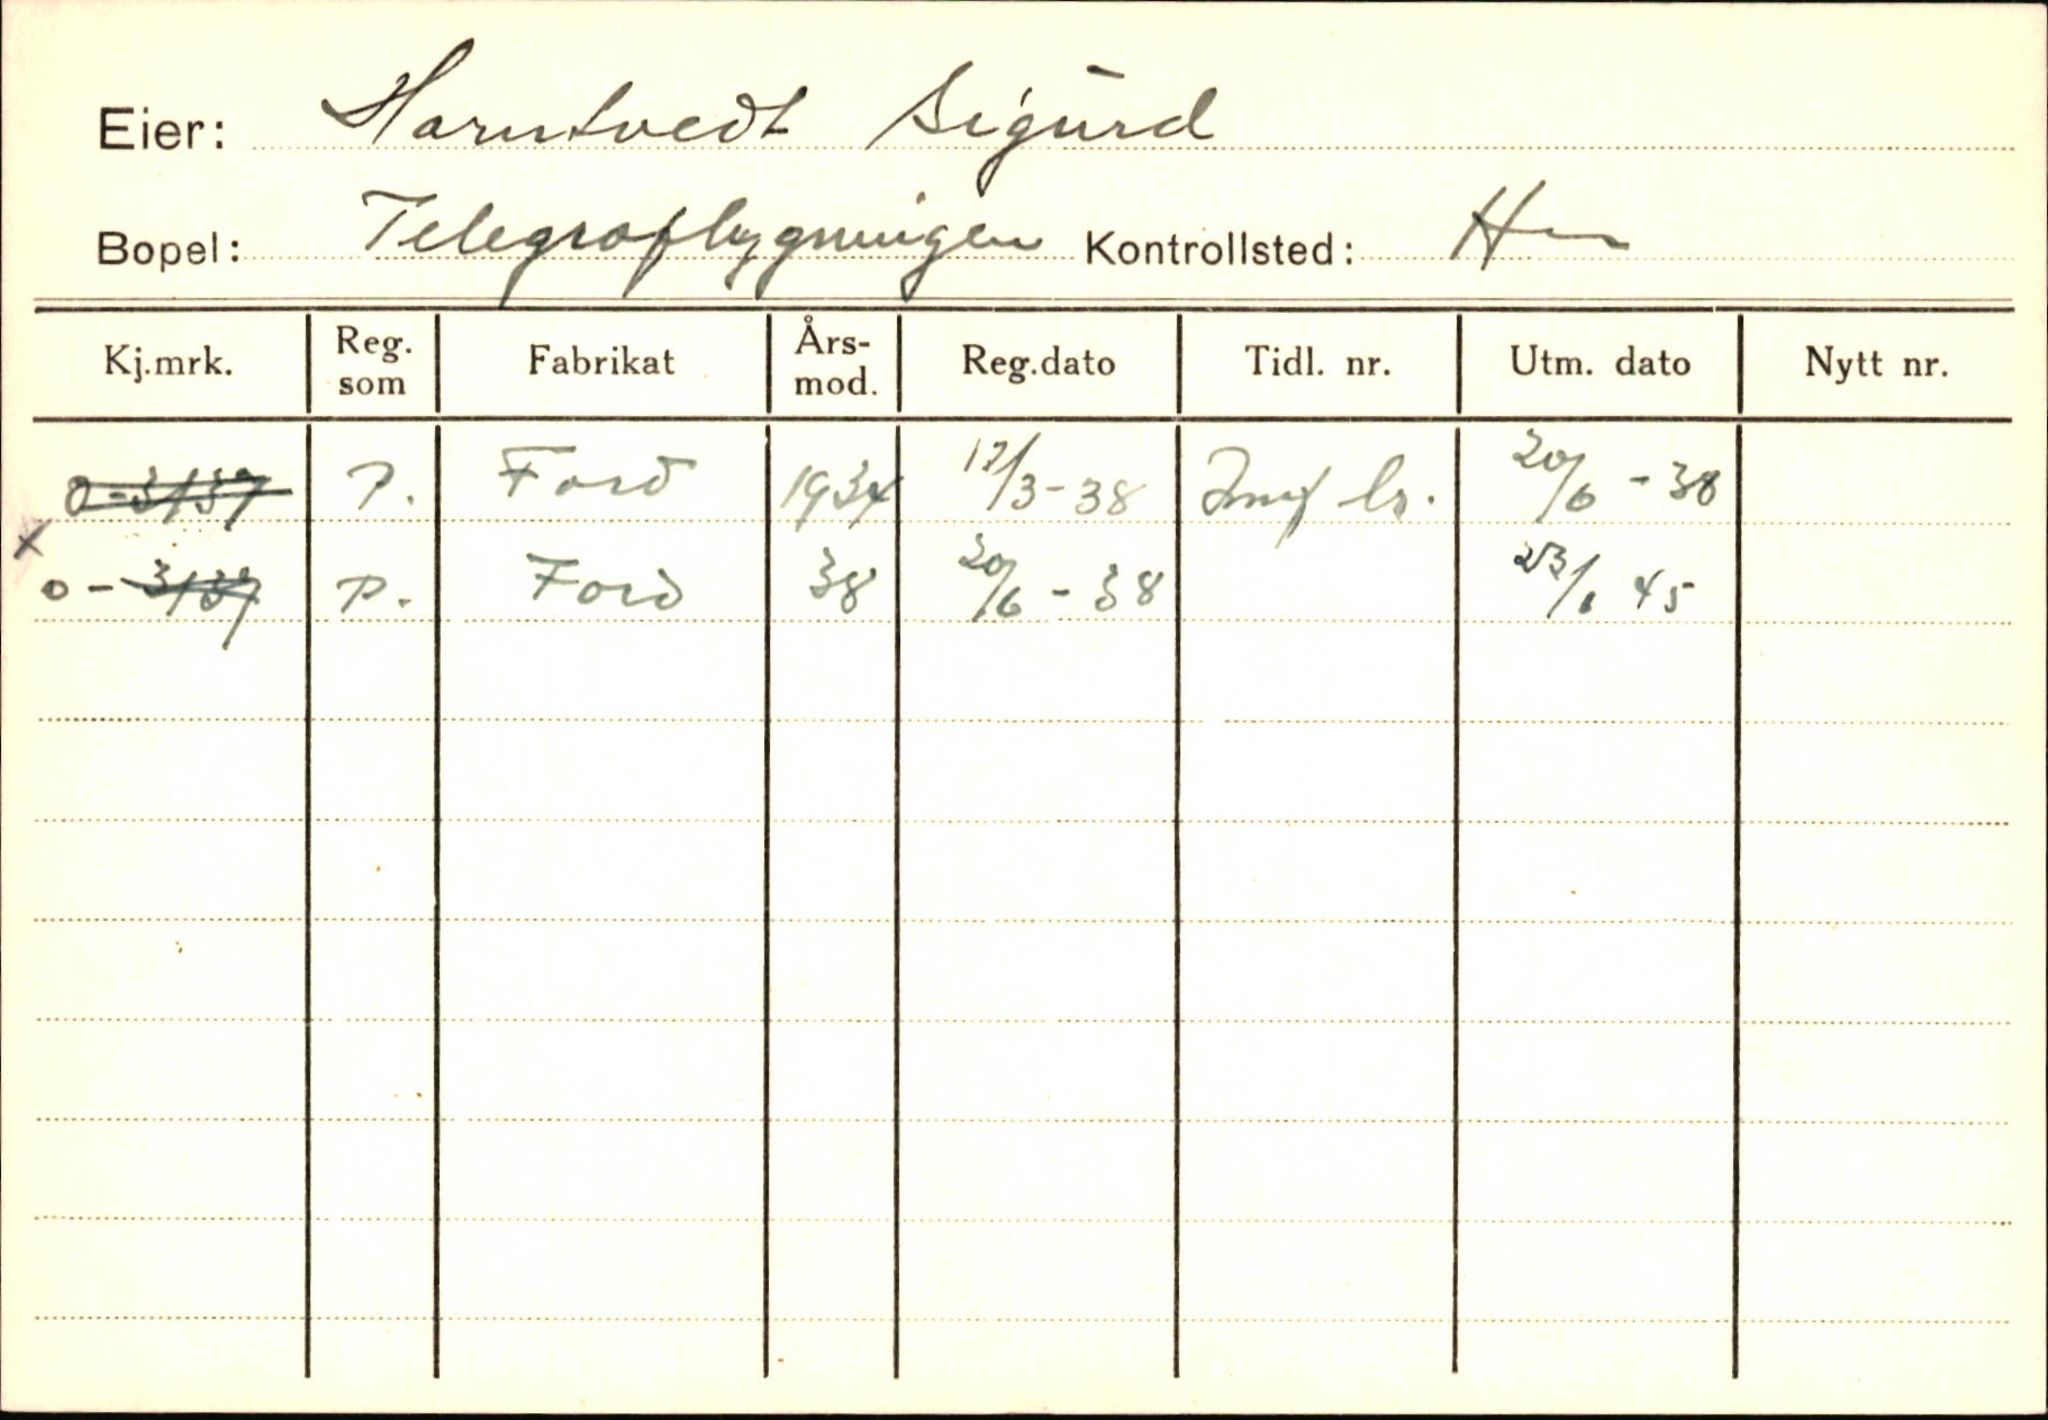 Eier: Harntvedt Sigurd
Bopel: Telegrafbygningen Kontrollsted: Hn
Kj.mrk. Reg. som Fabrikat Års-mod. Reg.dato Tidl. nr. Utm. dato Nytt nr.
O-3137 P. Ford 1934 17/3-38 20/6 - 38
x
O - 3137 P. Ford 38 20/6 - 38 23/1 45